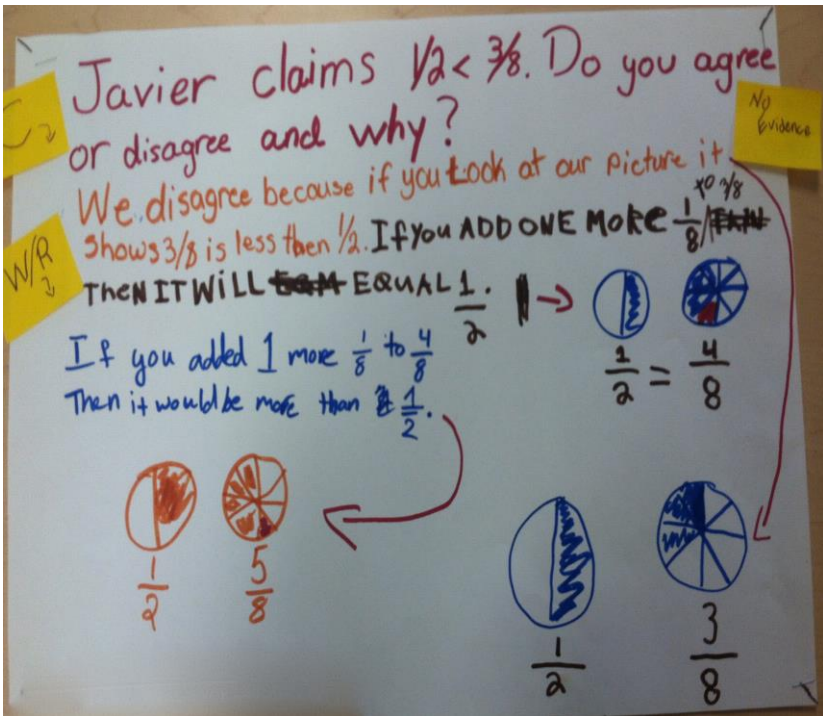 Javier claims 1/2 < 3/8. Do you agree
or disagree and why?
No
Evidence
C
We disagree because if you Look at our picture it
shows 3/8 is less then 1/2. If you ADD ONE MORE 1/8 to 3/8
W/R
TheN IT WILL EQUAL 1/2.
1/2 = 4/8
If you added 1 more 1/8 to 4/8
Then it would be more than 1/2.
1/2 5/8
1/2 3/8